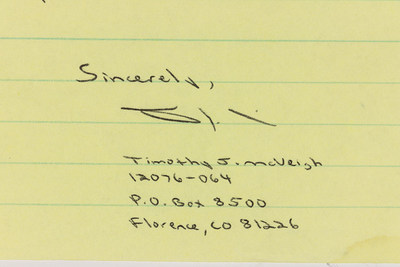 Sincerely,
Timothy J. McVeigh
12076-064
P.O. Box 8500
Florence, CO 81226